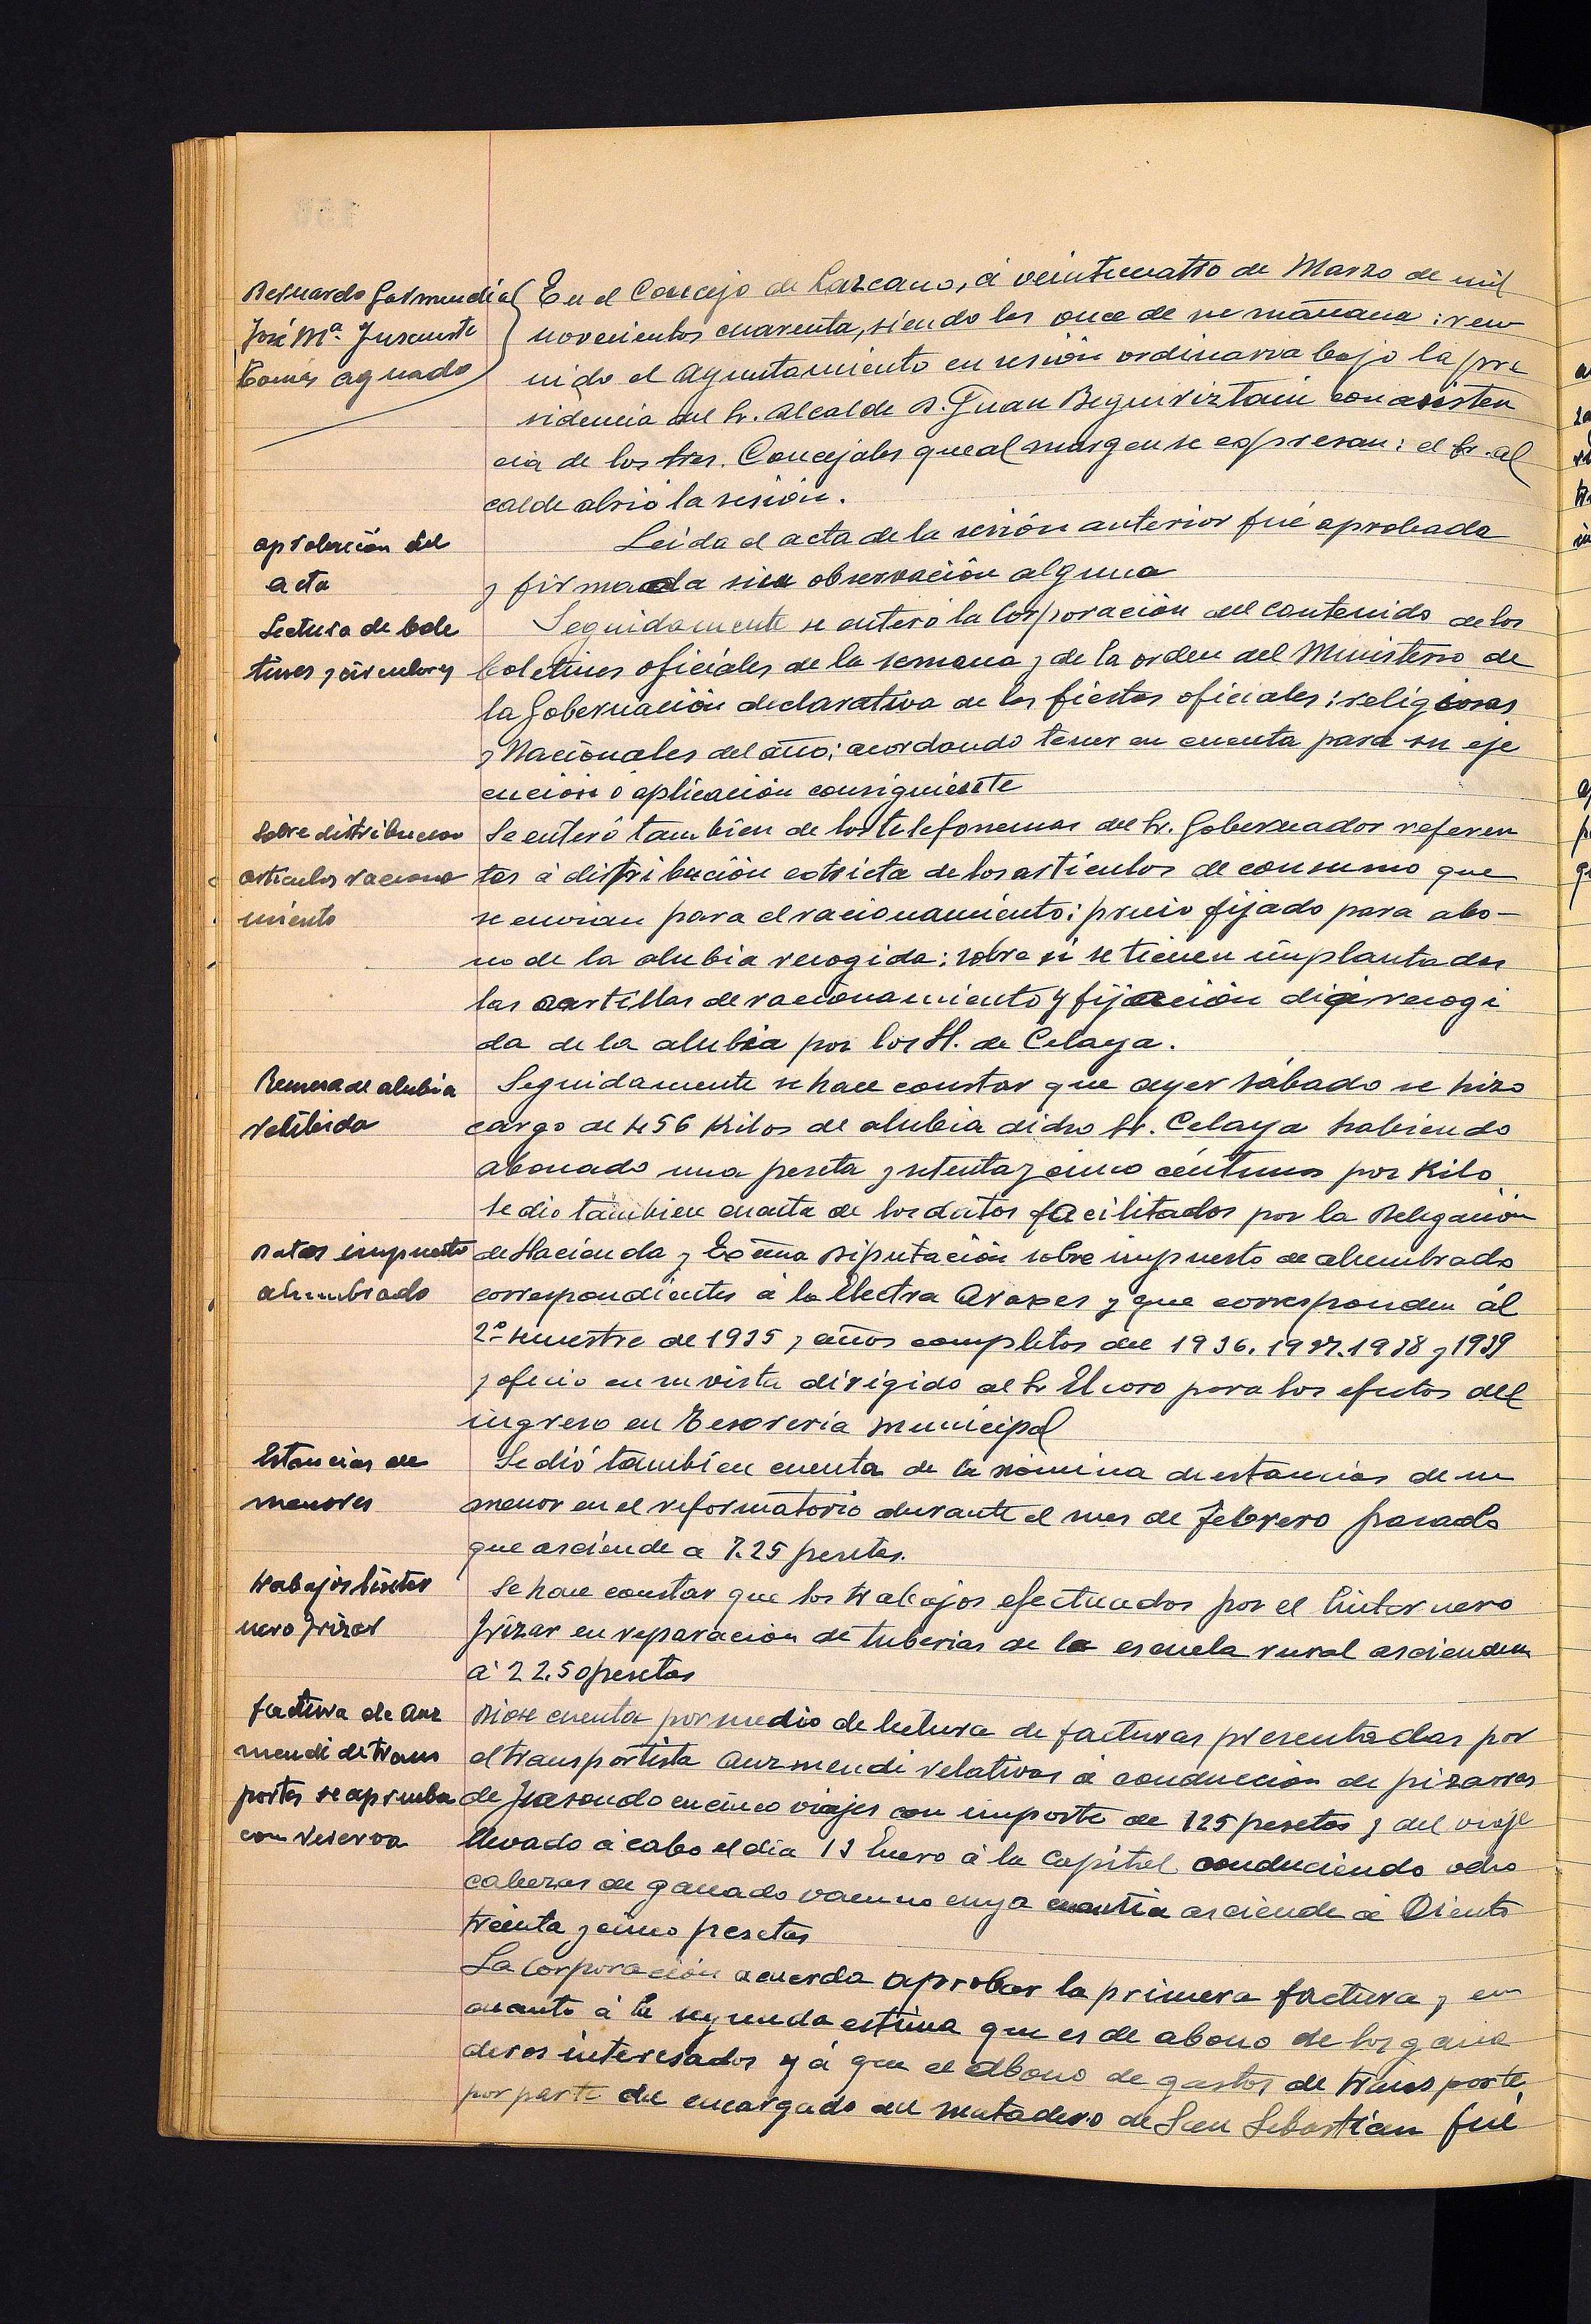 Bernardo Garmendia
José Mª. Insausti
Tomás Aguado
En el Concejo de Lazcano, á veinticuatro de Marzo de mil
novecientos cuarenta, siendo las once de su mañana: reu
nido el Ayuntamiento en sesión ordinaria bajo la pre
sidencia del Sr. Alcalde D. Juan Beguiriztain con asisten
cia de los Sres. Concejales que al margen se expresan: el Sr. Al
calde abrió la sesión.
aprobación del
acta
Leida el acta de la sesión anterior fué aprobada
y firmada sin observación alguna
Lectura de bole
tines y circulares
Seguidamente se enteró la Corporación del contenido de los
boletines oficiales de la semana y de la orden del Ministerio de
la Gobernación declarativa de las fiestas oficiales: religiosas
y Nacionales del año: acordando tener en cuenta para su eje
cución ó aplicación consiguiente
Sobre distribucion
artículos raciona
miento
Se enteró tambien de los telefonemas del Sr. Gobernador referen
tes á distribución estricta de los artículos de consumo que
se envian para el racionamiento: precio fijado para abo-
no de la alubia recogida: sobre si se tienen implantadas
las cartillas de racionamiento y fijación recogi
da de la alubia por los H. de Celaya.
Remesa de alubia
recibida
Seguidamente se hace constar que ayer sábado se hizo
cargo de 456 Kilos de alubia dicho Sr. Celaya habiendo
abonado una peseta y setenta y cinco céntimos por Kilo
Datos impuesto
alumbrado
Se dio tambien cuenta de los datos facilitados por la Delegación
de Hacienda y Excma Diputación sobre impuesto de alumbrado
correspondientes á la Electra Araxes y que corresponden ál
2º semestre de 1935 y años completos del 1936. 1937. 1938 y 1939
y oficio en su vista dirigido al Sr Elcoro para los efectos del
ingreso en Tesoreria Municipal
Estancias de
menores
Se dió también cuenta de la nómina de estancias de un
menor en el reformatorio durante el mes de Febrero pasado
que asciende a 7.25 pesetas.
trabajos linter
nero Irizar
Se hace constar que los trabajos efectuados por el linternero
Irizar en reparacion de tuberias de la escuela rural ascienden
á 22.50 pesetas
factura de Auz
mendi de trans
portes se aprueba
con reserva
Diose cuenta por medio de lectura de facturas presentadas por
el transportista Auzmendi relativas á conducción de pizarras
de Isasondo en cinco viajes con importe de 125 pesetas y del viaje
llevado á cabo el dia 13 Enero á la Capital conduciendo ocho
cabezas de ganado vacuno cuya cuantia asciende á Ciento
treinta y cinco pesetas
La Corporación acuerda aprobar la primera factura y en
cuanto á la segunda estima que es de abono de los gana
deros interesados y á que el abono de gastos de transporte,
por parte del encargado del matadero de San Sebastian fué